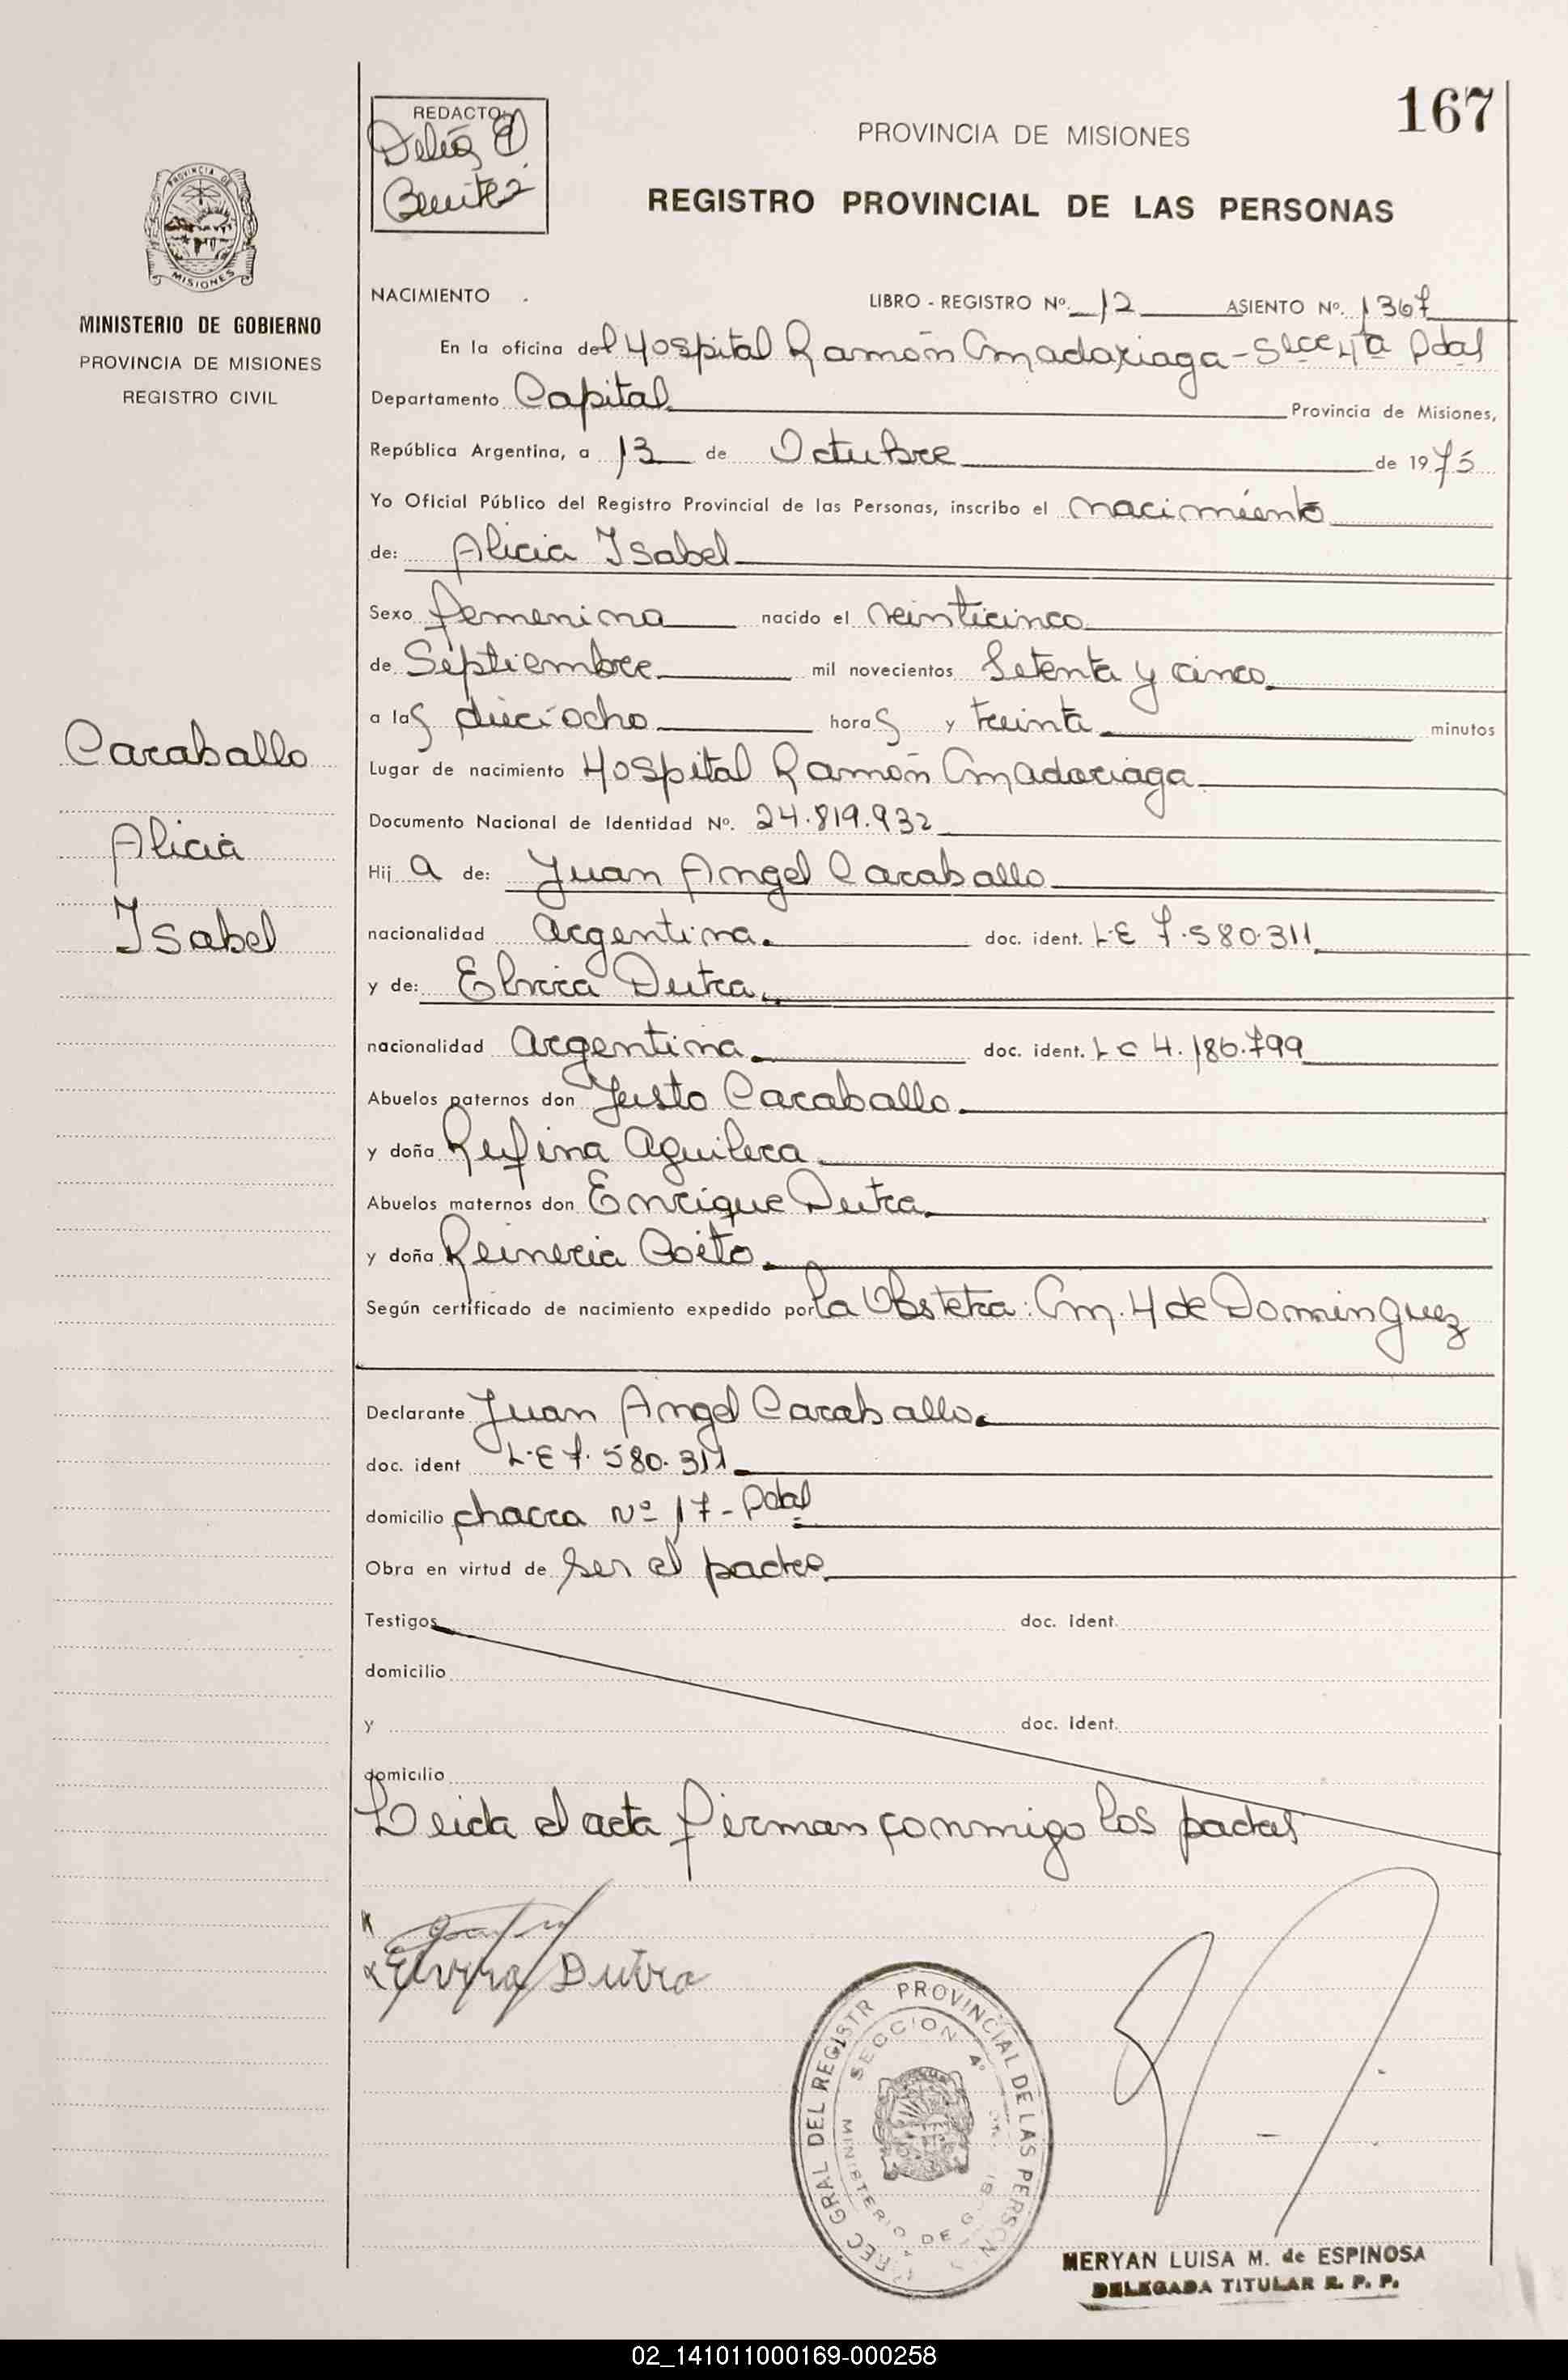 167
REDACTO:
Delia E
Benitez
PROVINCIA DE MISIONES
REGISTRO PROVINCIAL DE LAS PERSONAS
PROVINCIA DE
MISIONES
MINISTERIO DE GOBIERNO
PROVINCIA DE MISIONES
REGISTRO CIVIL
Caraballo
Alicia
Isabel
NACIMIENTO LIBRO - REGISTRO Nº. 12 ASIENTO Nº. 1367
En la oficina del Hospital Ramón Amadariaga - Secc 4ta Pdas
Departamento Capital Provincia de Misiones,
República Argentina, a 13 de Octubre de 1975
Yo Oficial Público del Registro Provincial de las Personas, inscribo el nacimiento
de: Alicia Isabel
Sexo femenina nacido el veinticinco
de Septiembre mil novecientos Setenta y cinco
a las dieciocho horas y treinta minutos
Lugar de nacimiento Hospital Ramón Amadariaga
Documento Nacional de Identidad Nº. 24.819.932
Hija de: Juan Angel Caraballo
nacionalidad Argentina. doc. ident. L.E 7.580.311
y de: Elvira Dutra
nacionalidad Argentina doc. ident. L C 4.186.799
Abuelos paternos don Justo Caraballo.
y doña Rufina Aguilera
Abuelos maternos don Enrique Dutra
y doña Reineria Coito
Según certificado de nacimiento expedido por la Obstetra: Am. H de Dominguez
Declarante Juan Angel Caraballo
doc. ident L.E 7.580.311
domicilio chacra Nº 17 - Pdas
Obra en virtud de ser el padre
Testigos doc. ident.
domicilio
y doc. ident.
domicilio
Leida el acta firman conmigo los padres
Elvira Dutra
GRAL DEL REGISTR PROVINCIAL DE LAS PERSON
SECCION 4º
MINISTERIO DE
MERYAN LUISA M. de ESPINOSA
DELEGADA TITULAR R. P. P.
02_141011000169-000258